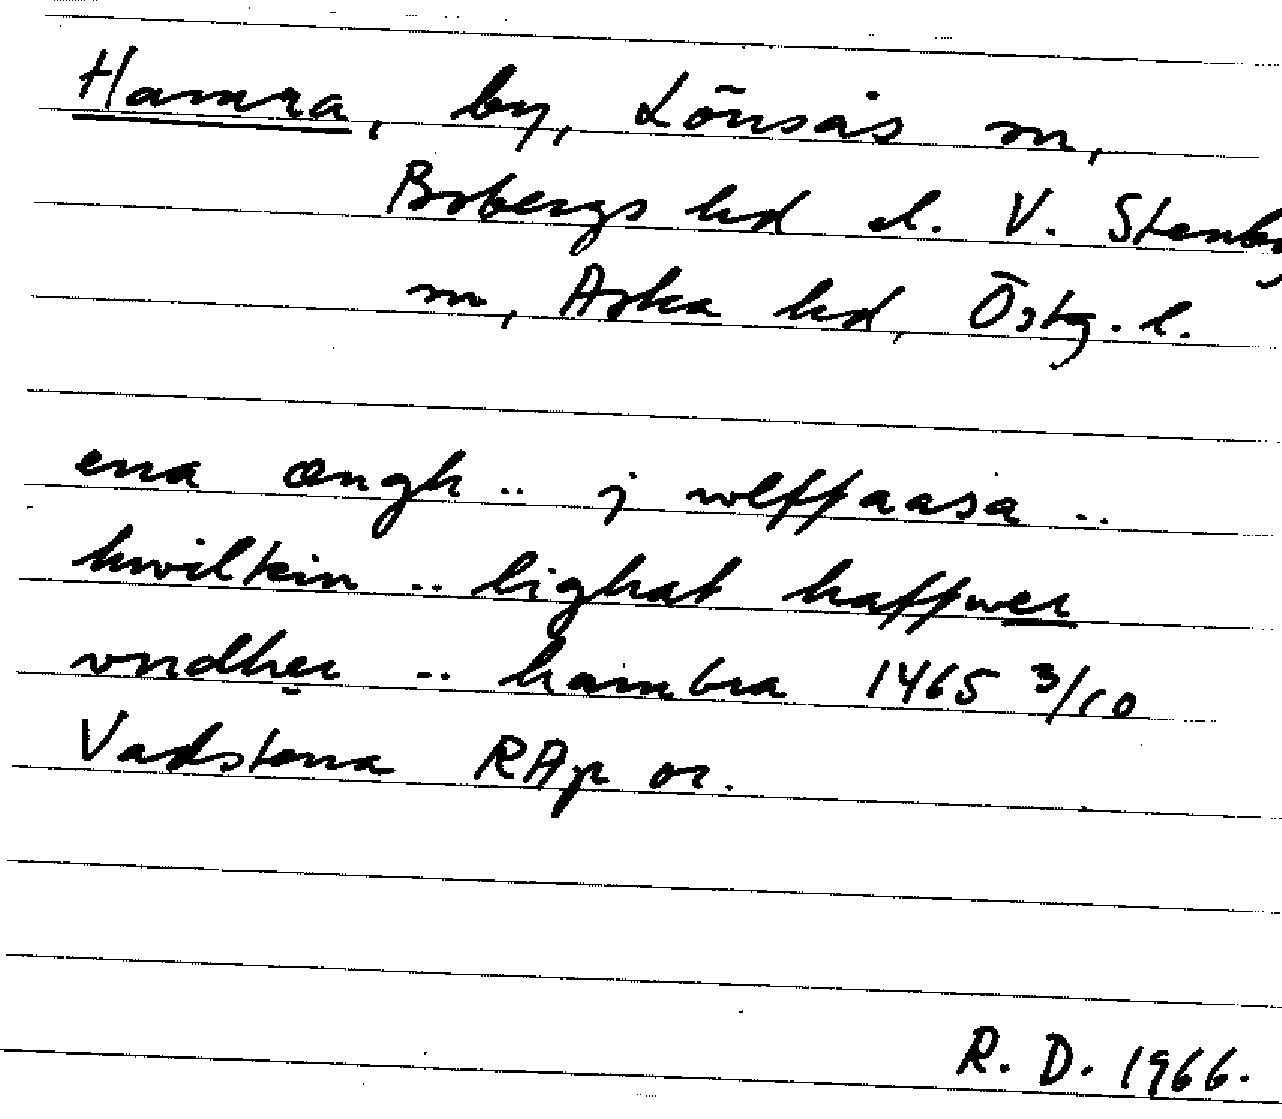 Hamra, by, Lönsås sn,
Bobergs hd el. V. Stenby
sn, Aska hd, Östg. l.
ena ængh .. j wlffaasa ..
hwilkin .. lighat haffwer
vndher .. hambra 1465 3/10
Vadstena RAp or.
R. D. 1966.